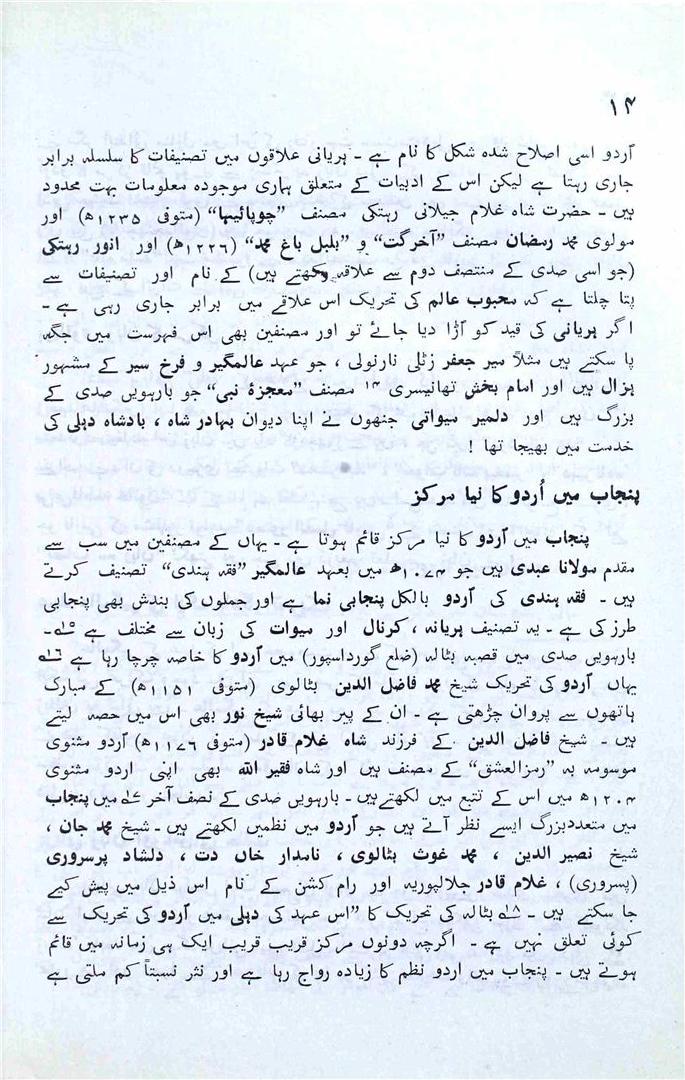 ۱۴
اُردو اسی اصلاح شدہ شکل کا نام ہے - ہریانی علاقوں میں تصنیفات کا سلسلہ برابر
جاری رہتا ہے لیکن اس کے ادبیات کے متعلق ہماری موجودہ معلومات بہت محدود
ہیں - حضرت شاہ غلام جیلانی رہتکی مصنف ”چوپائیہا“ (متوفی ۱۲۳۵ھ) اور
مولوی محمد رمضان مصنف ”آخرگت“ و ”بلبل باغ محمد“ (۱۲۲۶ھ) اور انور رہتکی
(جو اسی صدی کے منتصف دوم سے علاقہ رکھتے ہیں) کے نام اور تصنیفات سے
پتا چلتا ہے کہ محبوب عالم کی تحریک اس علاقے میں برابر جاری رہی ہے -
اگر ہریانی کی قید کو اُڑا دیا جائے تو اور مصنفین بھی اس فہرست میں جگہ
پا سکتے ہیں مثلاً میر جعفر زٹلی نارنولی ، جو عہد عالمگیر و فرخ سیر کے مشہور
ہزال ہیں اور امام بخش تھانیسری ۱۴ مصنف ”معجزۂ نبی“ جو بارہویں صدی کے
بزرگ ہیں اور دلمیر میواتی جنھوں نے اپنا دیوان بہادر شاہ ، بادشاہ دہلی کی
خدمت میں بھیجا تھا !
پنجاب میں اُردو کا نیا مرکز
پنجاب میں اُردو کا نیا مرکز قائم ہوتا ہے - یہاں کے مصنفین میں سب سے
مقدم مولانا عبدی ہیں جو ۱۰۷۴ھ میں بعہد عالمگیر ”فقہ ہندی“ تصنیف کرتے
ہیں - فقہ ہندی کی اُردو بالکل پنجابی نما ہے اور جملوں کی بندش بھی پنجابی
طرز کی ہے - یہ تصنیف ہریانہ ، کرنال اور میوات کی زبان سے مختلف ہے ۱۵ -
بارہویں صدی میں قصبہ بٹالہ (ضلع گورداسپور) میں اُردو کا خاصہ چرچا رہا ہے ۱۶
یہاں اُردو کی تحریک شیخ محمد فاضل الدین بٹالوی (متوفی ۱۱۵۱ھ) کے مبارک
ہاتھوں سے پروان چڑھتی ہے - ان کے پیر بھائی شیخ نور بھی اس میں حصہ لیتے
ہیں - شیخ فاضل الدین کے فرزند شاہ غلام قادر (متوفی ۱۱۷۶ھ) اُردو مثنوی
موسومہ بہ ”رمزالعشق“ کے مصنف ہیں اور شاہ فقیر اللہ بھی اپنی اردو مثنوی
۱۲۰۴ھ میں اس کے تتبع میں لکھتے ہیں - بارہویں صدی کے نصف آخر ۱۷ میں پنجاب
میں متعدد بزرگ ایسے نظر آتے ہیں جو اُردو میں نظمیں لکھتے ہیں - شیخ محمد جان ،
شیخ نصیر الدین ، محمد غوث بٹالوی ، نامدار خاں دت ، دلشاد پرسروری
(پسروری) ، غلام قادر جلالپوریہ اور رام کشن کے نام اس ذیل میں پیش کیے
جا سکتے ہیں - ۱۸ بٹالہ کی تحریک کا ”اس عہد کی دہلی میں اُردو کی تحریک سے
کوئی تعلق نہیں ہے - اگرچہ دونوں مرکز قریب قریب ایک ہی زمانہ میں قائم
ہوتے ہیں - پنجاب میں اردو نظم کا زیادہ رواج رہا ہے اور نثر نسبتاً کم ملتی ہے